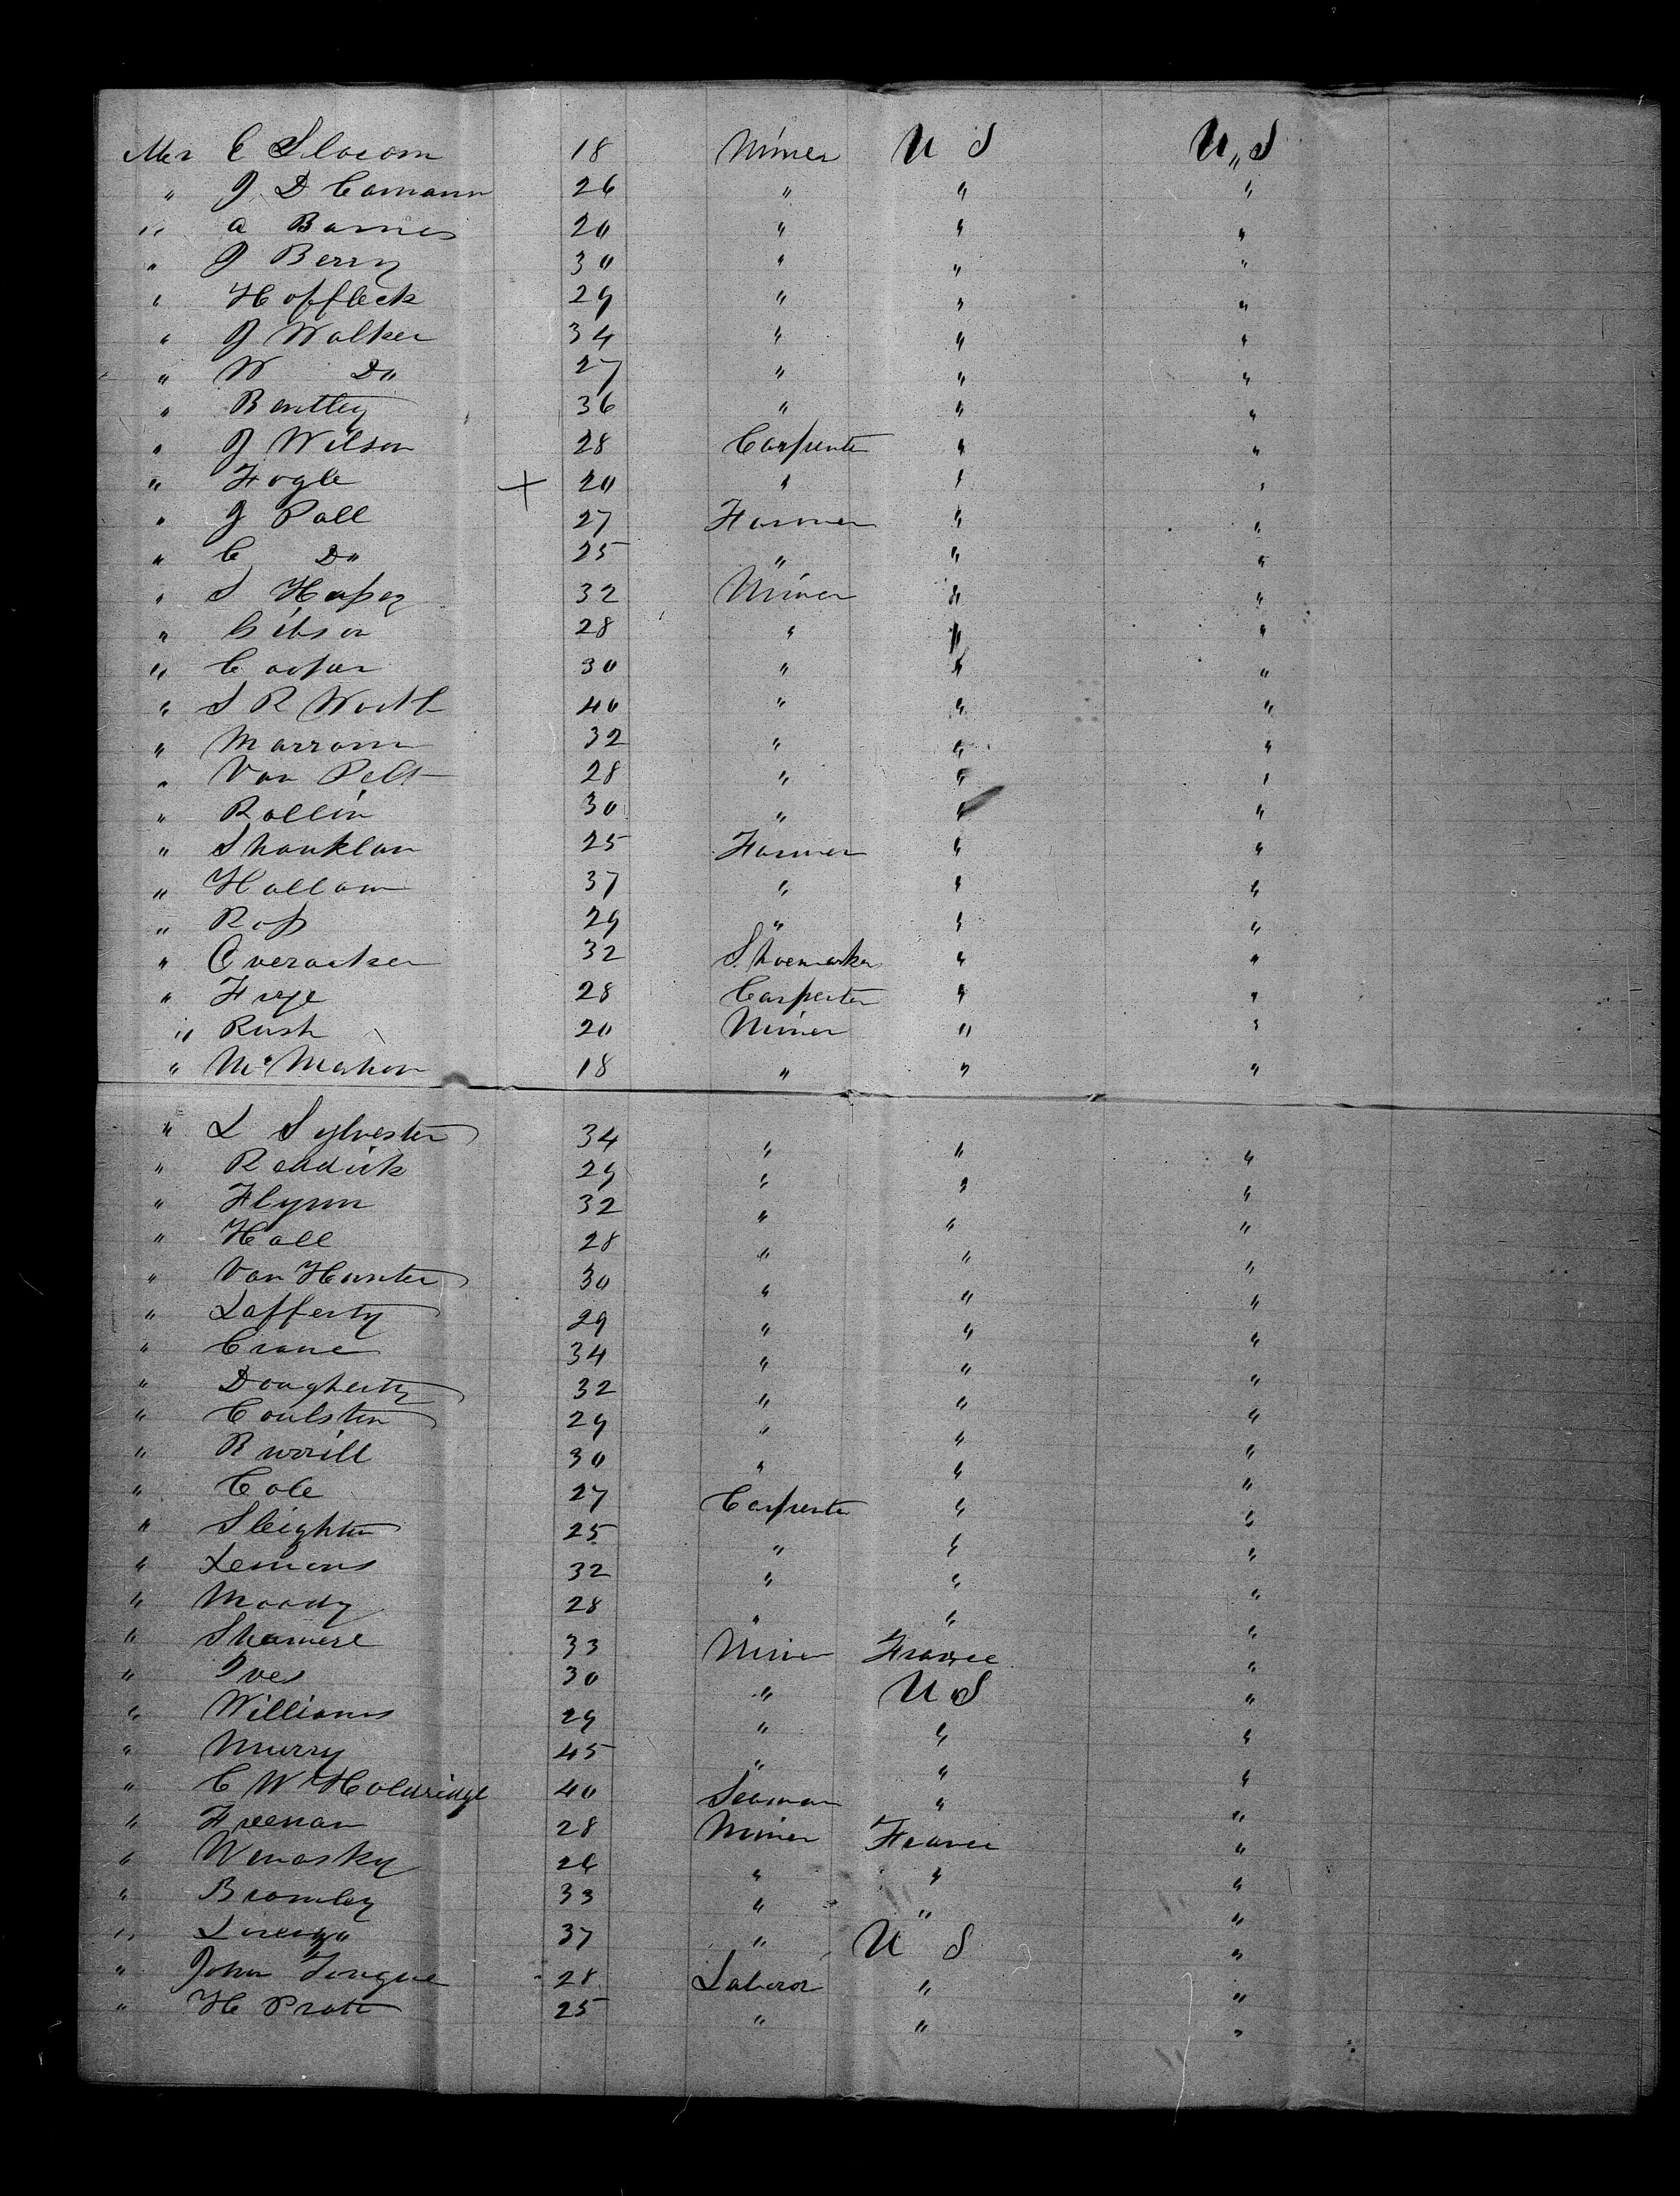 Mr E Slocom 18 Miner U S U,,S
" J D Camann 26 " " "
" A Barnes 20 " " "
" J Berry 30 " " "
" Hoffleck 29 " " "
" J Walker 34 " " "
" W Do 27 " " "
" Bentley 36 " " "
" J Wilson 28 Carpenter " "
" Fogle + 20 " " "
" J Pall 27 Farmer " "
" C Do 25 " " "
" S Hapey 32 Miner " "
" Gibson 28 " " "
" Casper 30 " " "
" S R Worth 40 " " "
" Marrom 32 " " "
" Van Pelt 28 " " "
" Rollin 30 " " "
" Shanklan 25 Farmer " "
" Hallam 37 " " "
" Ross 29 " " "
" Overacker 32 Shoemaker " "
" Frye 28 Carpenter " "
" Rush 20 Miner " "
" McMahon 18 " " "
" L Sylvester 34 " " "
" Reddick 29 " " "
" Flynn 32 " " "
" Hall 28 " " "
" Van Hunter 30 " " "
" Lafferty 29 " " "
" Crane 34 " " "
" Dougherty 32 " " "
" Coulsten 29 " " "
" Burrill 30 " " "
" Cole 27 Carpenter " "
" Sleighter 25 " " "
" Lemons 32 " " "
" Moody 28 " " "
" 33 Miner France "
" Ives 30 " U S "
" Williams 29 " " "
" Murry 45 " " "
" C W Holdridge 40 Seaman " "
" Freenan 28 Miner France "
" Wenosky 26 " " "
" Bromley 33 " " "
" Lorenzo 37 " U S "
" John Tongue 28 Laboror " "
" H Pratt 25 " " "